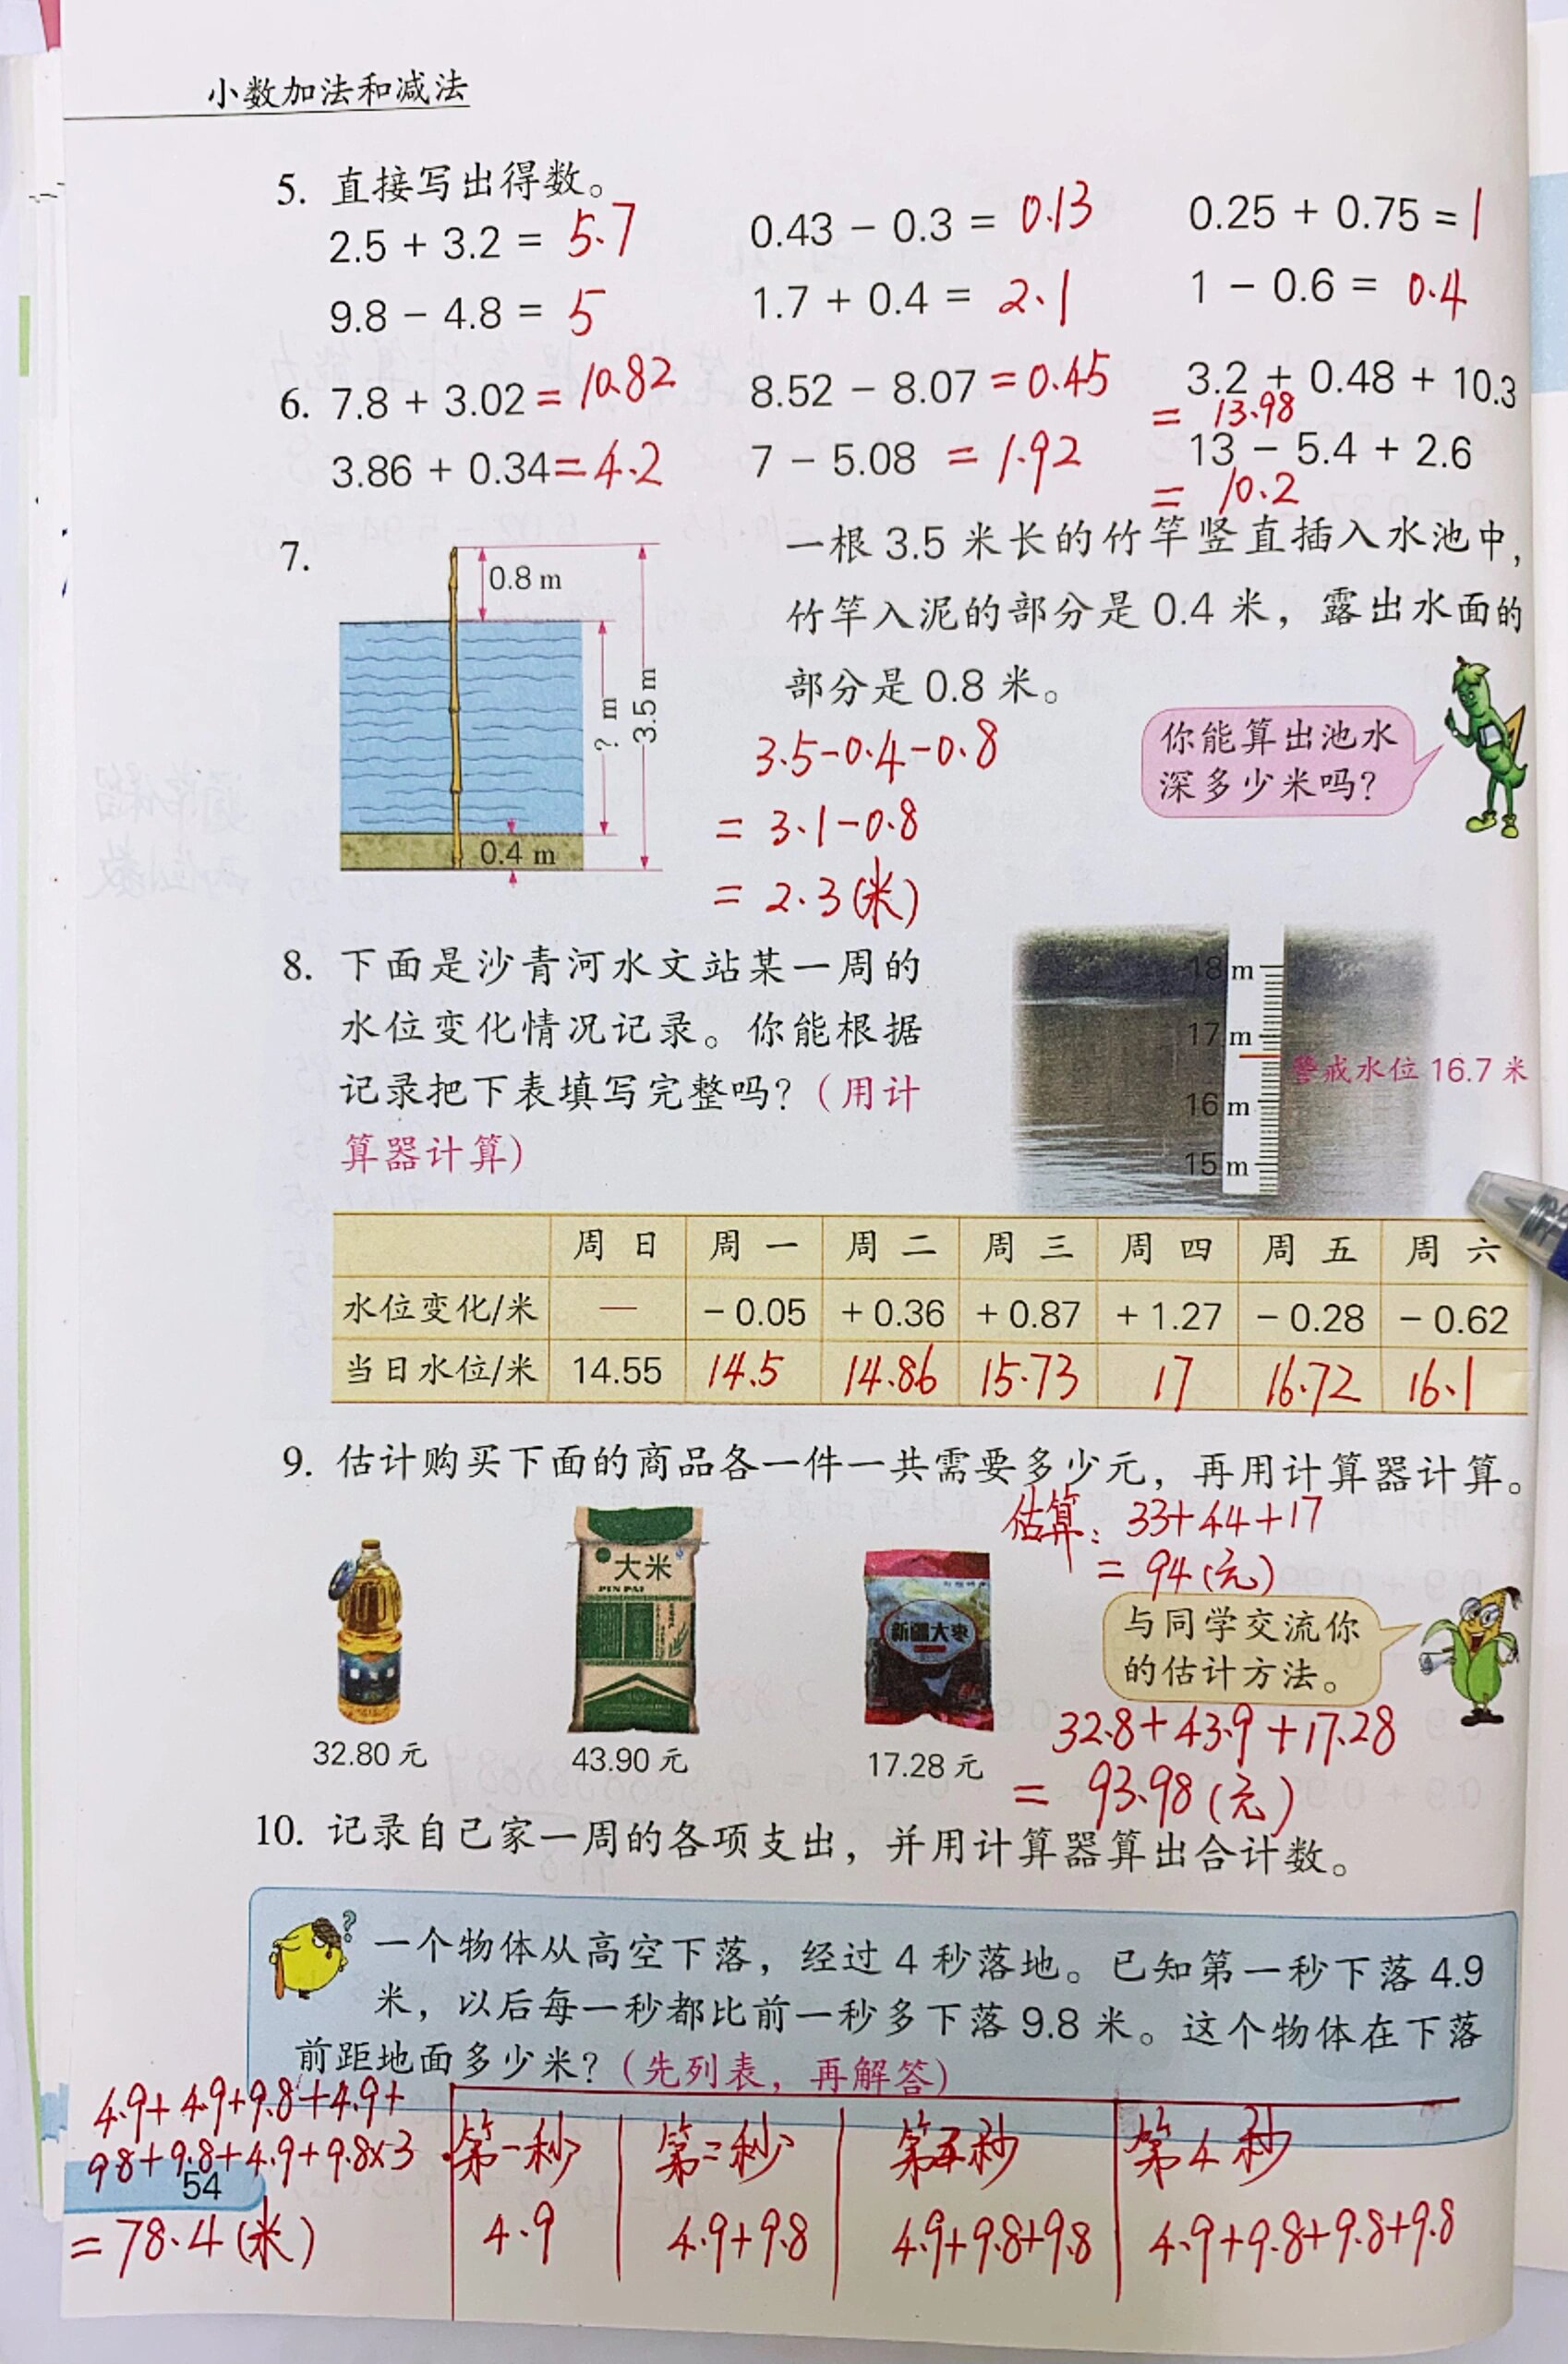 小数加法和减法
5. 直接写出得数。
2.5 + 3.2 = 5.7 0.43 - 0.3 = 0.13 0.25 + 0.75 = 1
9.8 - 4.8 = 5 1.7 + 0.4 = 2.1 1 - 0.6 = 0.4
6. 7.8 + 3.02 = 10.82 8.52 - 8.07 = 0.45 3.2 + 0.48 + 10.3
= 13.98
3.86 + 0.34 = 4.2 7 - 5.08 = 1.92 13 - 5.4 + 2.6
= 10.2
7. 一根 3.5 米长的竹竿竖直插入水池中,
竹竿入泥的部分是 0.4 米，露出水面的
部分是 0.8 米。
0.8 m
? m
3.5 m
0.4 m
你能算出池水
深多少米吗?
3.5-0.4-0.8
= 3.1-0.8
= 2.3(米)
8. 下面是沙青河水文站某一周的
水位变化情况记录。你能根据
记录把下表填写完整吗?(用计
算器计算)
18 m
17 m
警戒水位 16.7 米
16 m
15 m
周日 周一 周二 周三 周四 周五 周六
水位变化/米 — - 0.05 + 0.36 + 0.87 + 1.27 - 0.28 - 0.62
当日水位/米 14.55 14.5 14.86 15.73 17 16.72 16.1
9. 估计购买下面的商品各一件一共需要多少元，再用计算器计算。
估算: 33+44+17
= 94(元)
大米
PIN PAI
新疆大枣
与同学交流你
的估计方法。
32.80 元 43.90 元 17.28 元
32.8+43.9+17.28
= 93.98(元)
10. 记录自己家一周的各项支出，并用计算器算出合计数。
?
一个物体从高空下落，经过 4 秒落地。已知第一秒下落 4.9
米，以后每一秒都比前一秒多下落 9.8 米。这个物体在下落
前距地面多少米?(先列表，再解答)
4.9+4.9+9.8+4.9+
9.8+9.8+4.9+9.8×3
= 78.4(米)
第一秒 第二秒 第 秒 第4秒
4.9 4.9+9.8 4.9+9.8+9.8 4.9+9.8+9.8+9.8
54